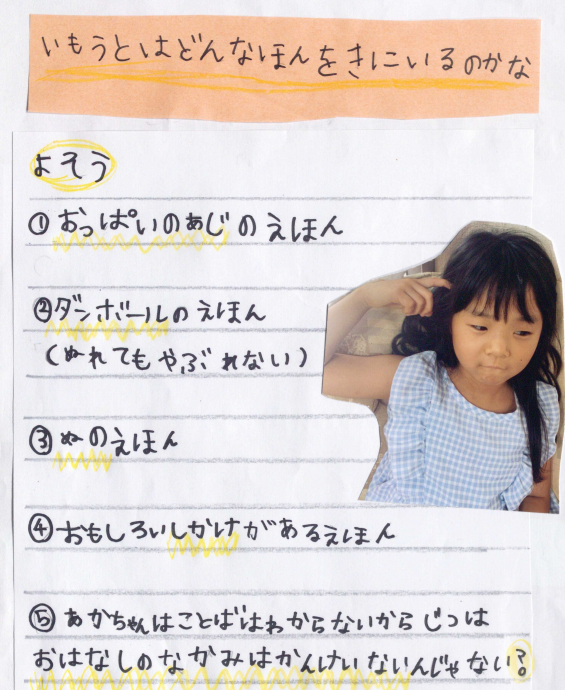 いもうとはどんなほんをきにいるのかな
よそう
①おっぱいのあじのえほん
②ダンボールのえほん
(ぬれてもやぶれない)
③ぬのえほん
④おもしろいしかけがあるえほん
⑤あかちゃんはことばはわからないからじつは
おはなしのなかみはかんけいないんじゃない?